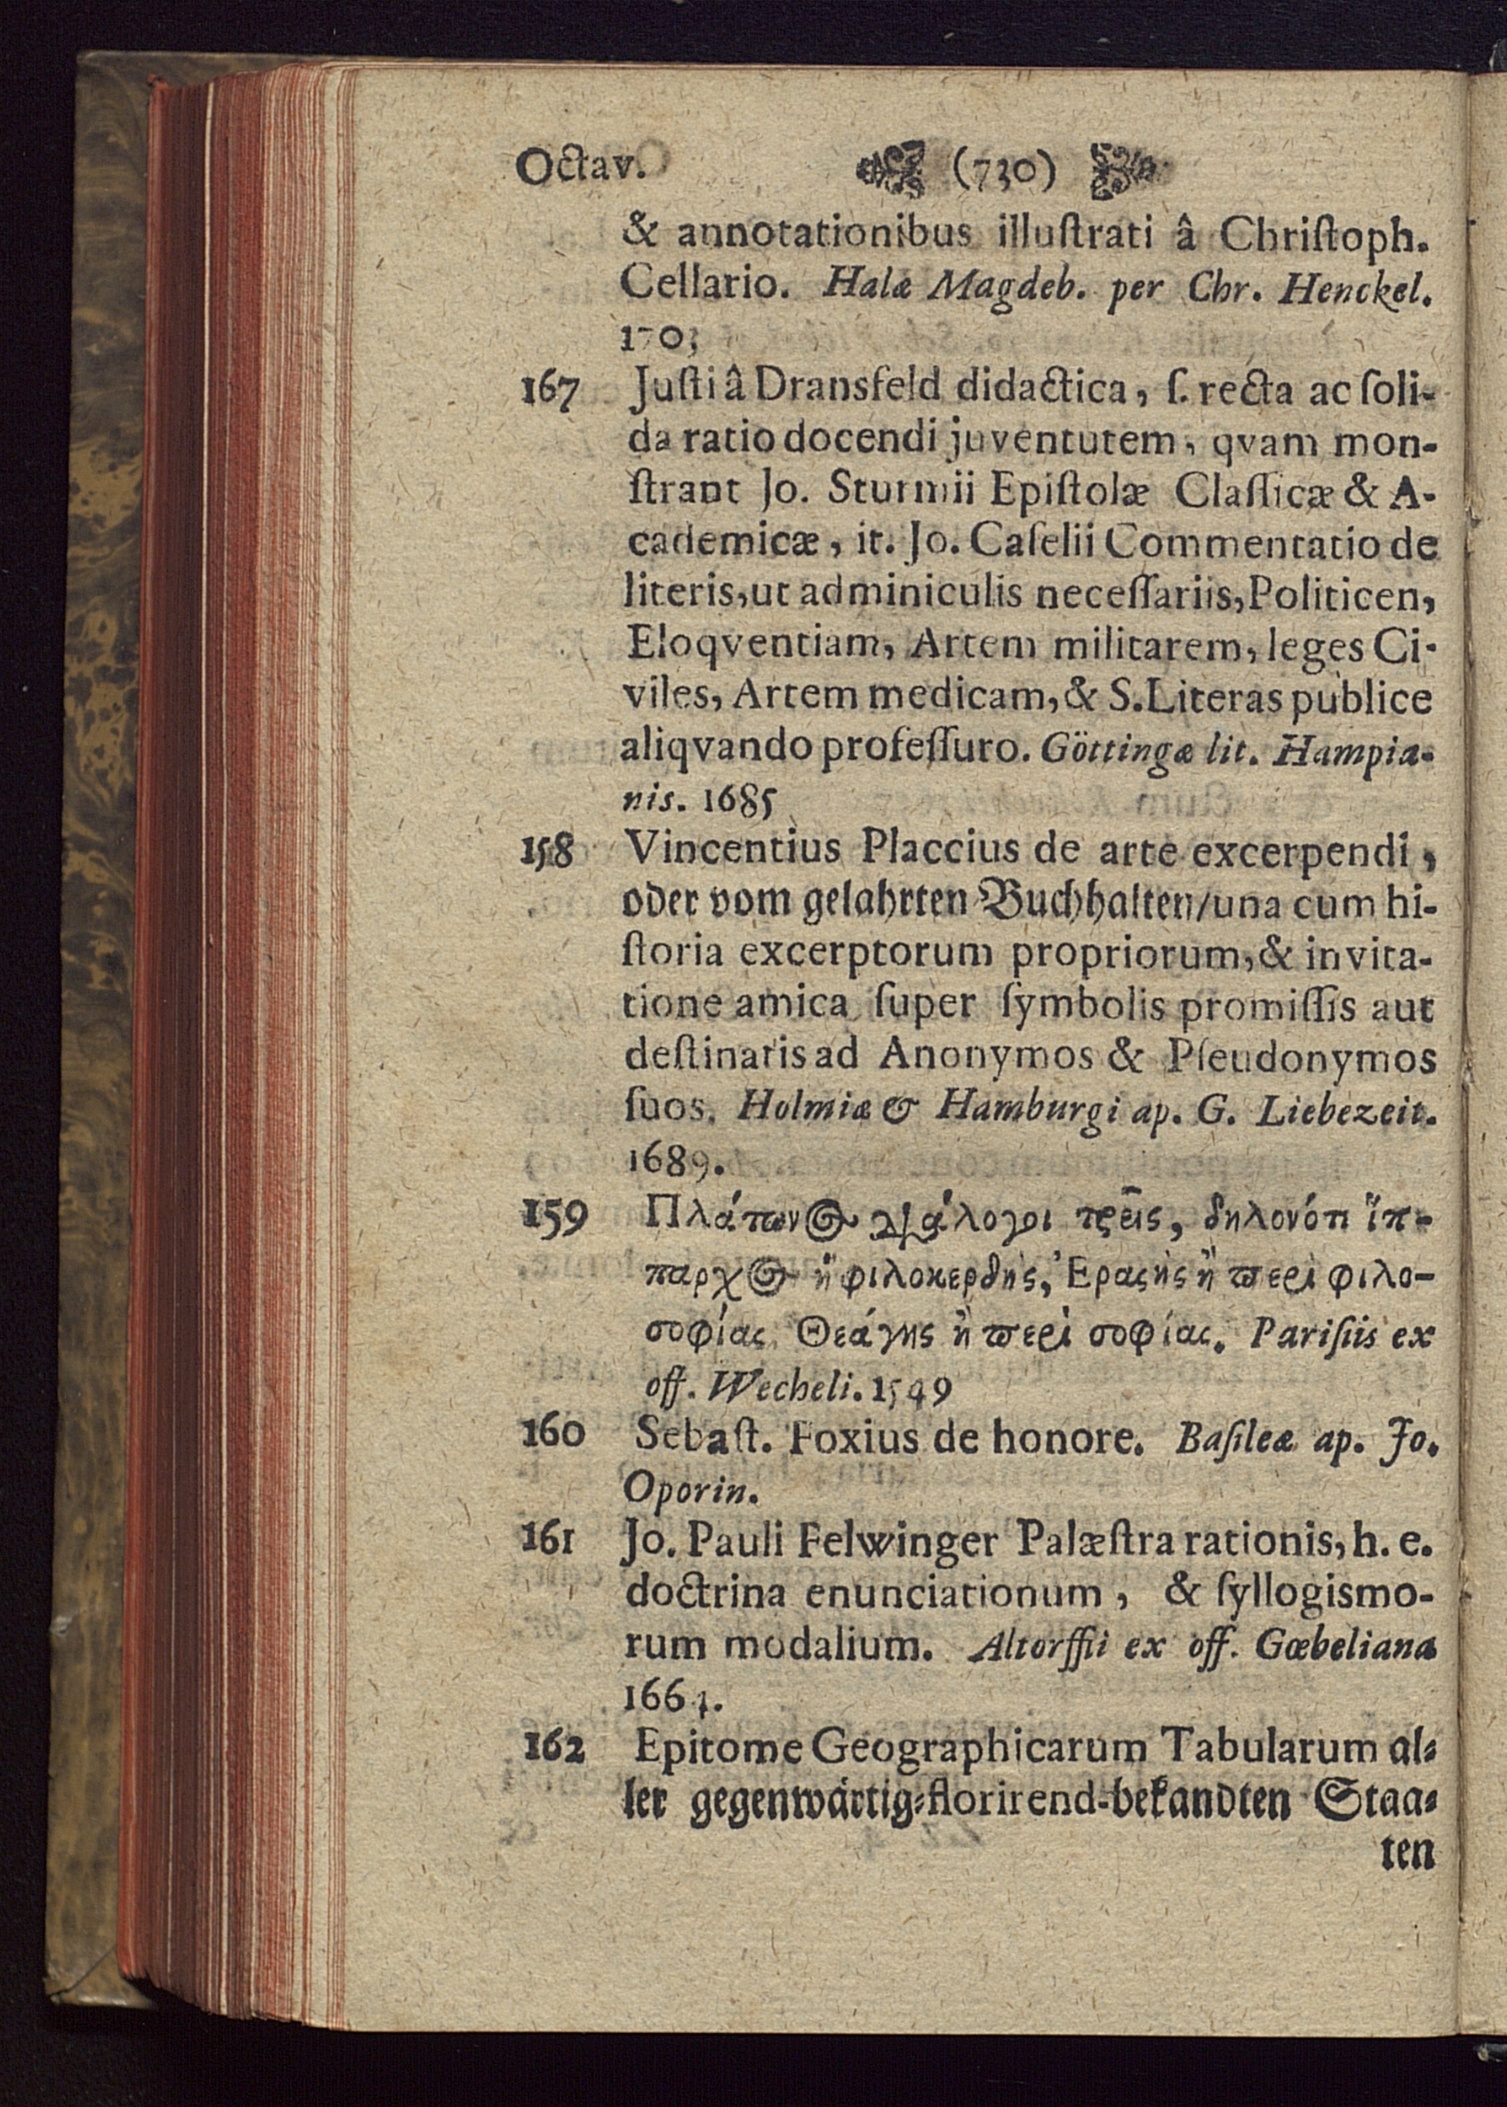 Octav. (730)
& annotationibus illuſtrati â Chriſtoph.
Cellario. Halæ Magdeb. per Chr. Henckel.
1703
167 Juſti â Dransfeld didactica, ſ. recta ac ſoli-
da ratio docendi juventutem, qvam mon-
ſtrant Jo. Sturmii Epiſtolæ Claſſicæ & A-
cademicæ, it. Jo. Caſelii Commentatio de
literis, ut adminiculis neceſſariis, Politicen,
Eloqventiam, Artem militarem, leges Ci-
viles, Artem medicam, & S. Literas publice
aliqvando profeſſuro. Göttingæ lit. Hampia-
nis. 1685
158 Vincentius Placcius de arte excerpendi,
oder vom gelahrten Buchhalten/una cum hi-
ſtoria excerptorum propriorum, & invita-
tione amica ſuper ſymbolis promiſſis aut
deſtinatis ad Anonymos & Pſeudonymos
ſuos. Holmiæ & Hamburgi ap. G. Liebezeit.
1689.
159 Πλάτωνος διάλογοι τρεῖς, δηλονότι ἵπ-
παρχος ἢ φιλοκερδὴς, Ἐραστὴς ἢ περὶ φιλο-
σοφίας Θεάγης ἢ περὶ σοφίας. Pariſiis ex
off. Wecheli. 1549
160 Sebaſt. Foxius de honore. Baſileæ ap. Jo.
Oporin.
161 Jo. Pauli Felwinger Palæſtra rationis, h. e.
doctrina enunciationum, & ſyllogismo-
rum modalium. Altorffii ex off. Gœbeliana
1664.
162 Epitome Geographicarum Tabularum al-
ler gegenwärtig-florirend-bekandten Staa-
ten